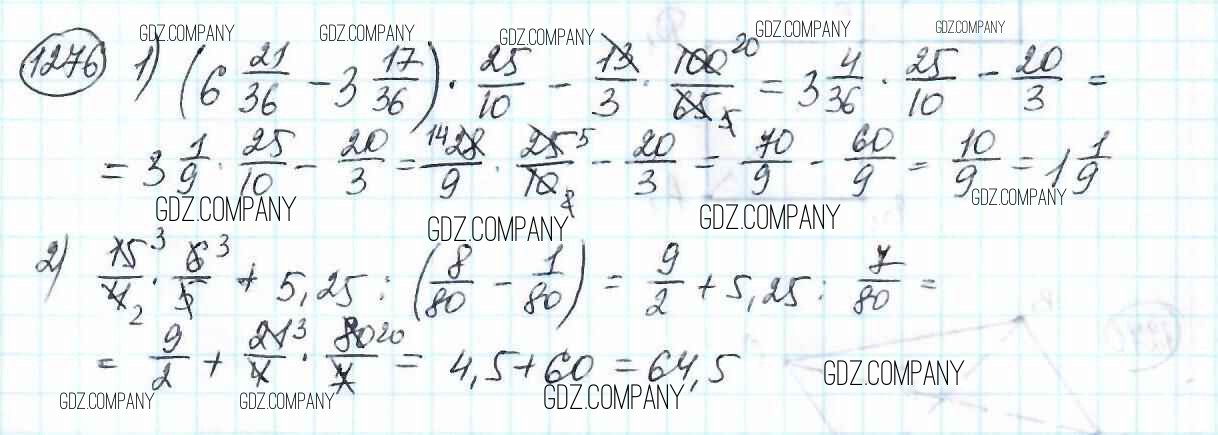 GDZ.COMPANY GDZ.COMPANY GDZ.COMPANY GDZ.COMPANY GDZ.COMPANY
1276 1) (6 21/36 - 3 17/36) · 25/10 - 13/3 · 100 20/65 5 = 3 4/36 · 25/10 - 20/3 =
= 3 1/9 · 25/10 - 20/3 = 14 28/9 · 25 5/10 2 - 20/3 = 70/9 - 60/9 = 10/9 = 1 1/9
GDZ.COMPANY GDZ.COMPANY GDZ.COMPANY GDZ.COMPANY
2) 15 3/4 2 · 6 3/5 + 5,25 : (8/80 - 1/80) = 9/2 + 5,25 : 7/80 =
= 9/2 + 21 3/4 · 80 20/7 = 4,5 + 60 = 64,5
GDZ.COMPANY GDZ.COMPANY GDZ.COMPANY GDZ.COMPANY